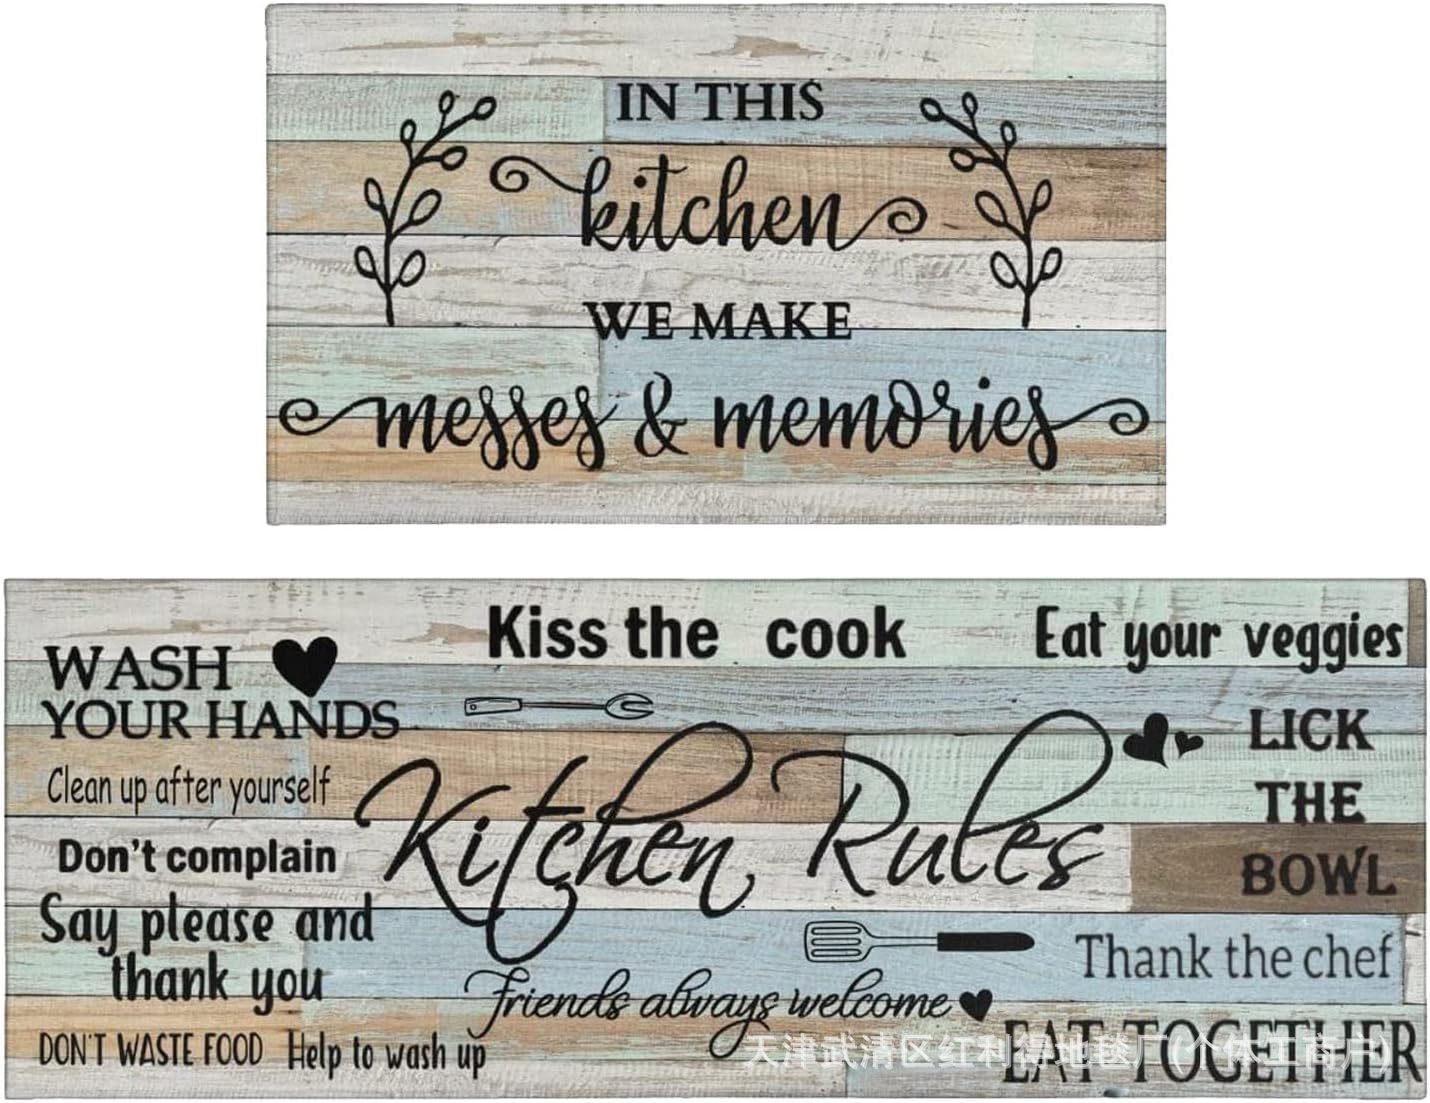 IN THIS
kitchen
WE MAKE
messes & memories
Kiss the cook
Eat your veggies
WASH
YOUR HANDS
LICK
THE
BOWL
Clean up after yourself
Kitchen Rules
Don't complain
Say please and
thank you
Thank the chef
friends always welcome
DON'T WASTE FOOD
Help to wash up
EAT TOGETHER
天津武清区红利得地毯厂(个体工商户)